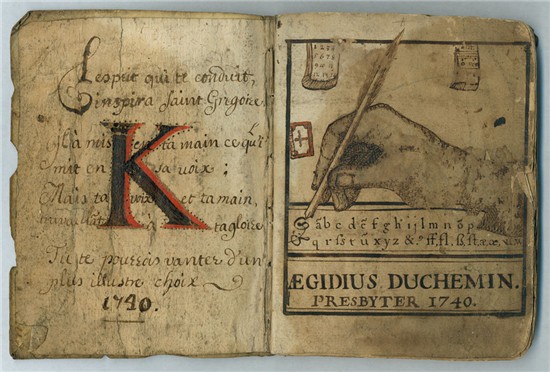 L'esprit qui te conduit,
inspira Saint Gregoire
mis en ta main ce qu'il
mit en sa voix :
Mais ta voix et ta main,
travaillant a ta gloire
Tu te pourrois vanter d'un
plus illustre choix
1740.
K
ã b c d ẽ f g h ij l m n õ p
q r ſ s t ũ x y z &
ÆGIDIUS DUCHEMIN.
PRESBYTER 1740.